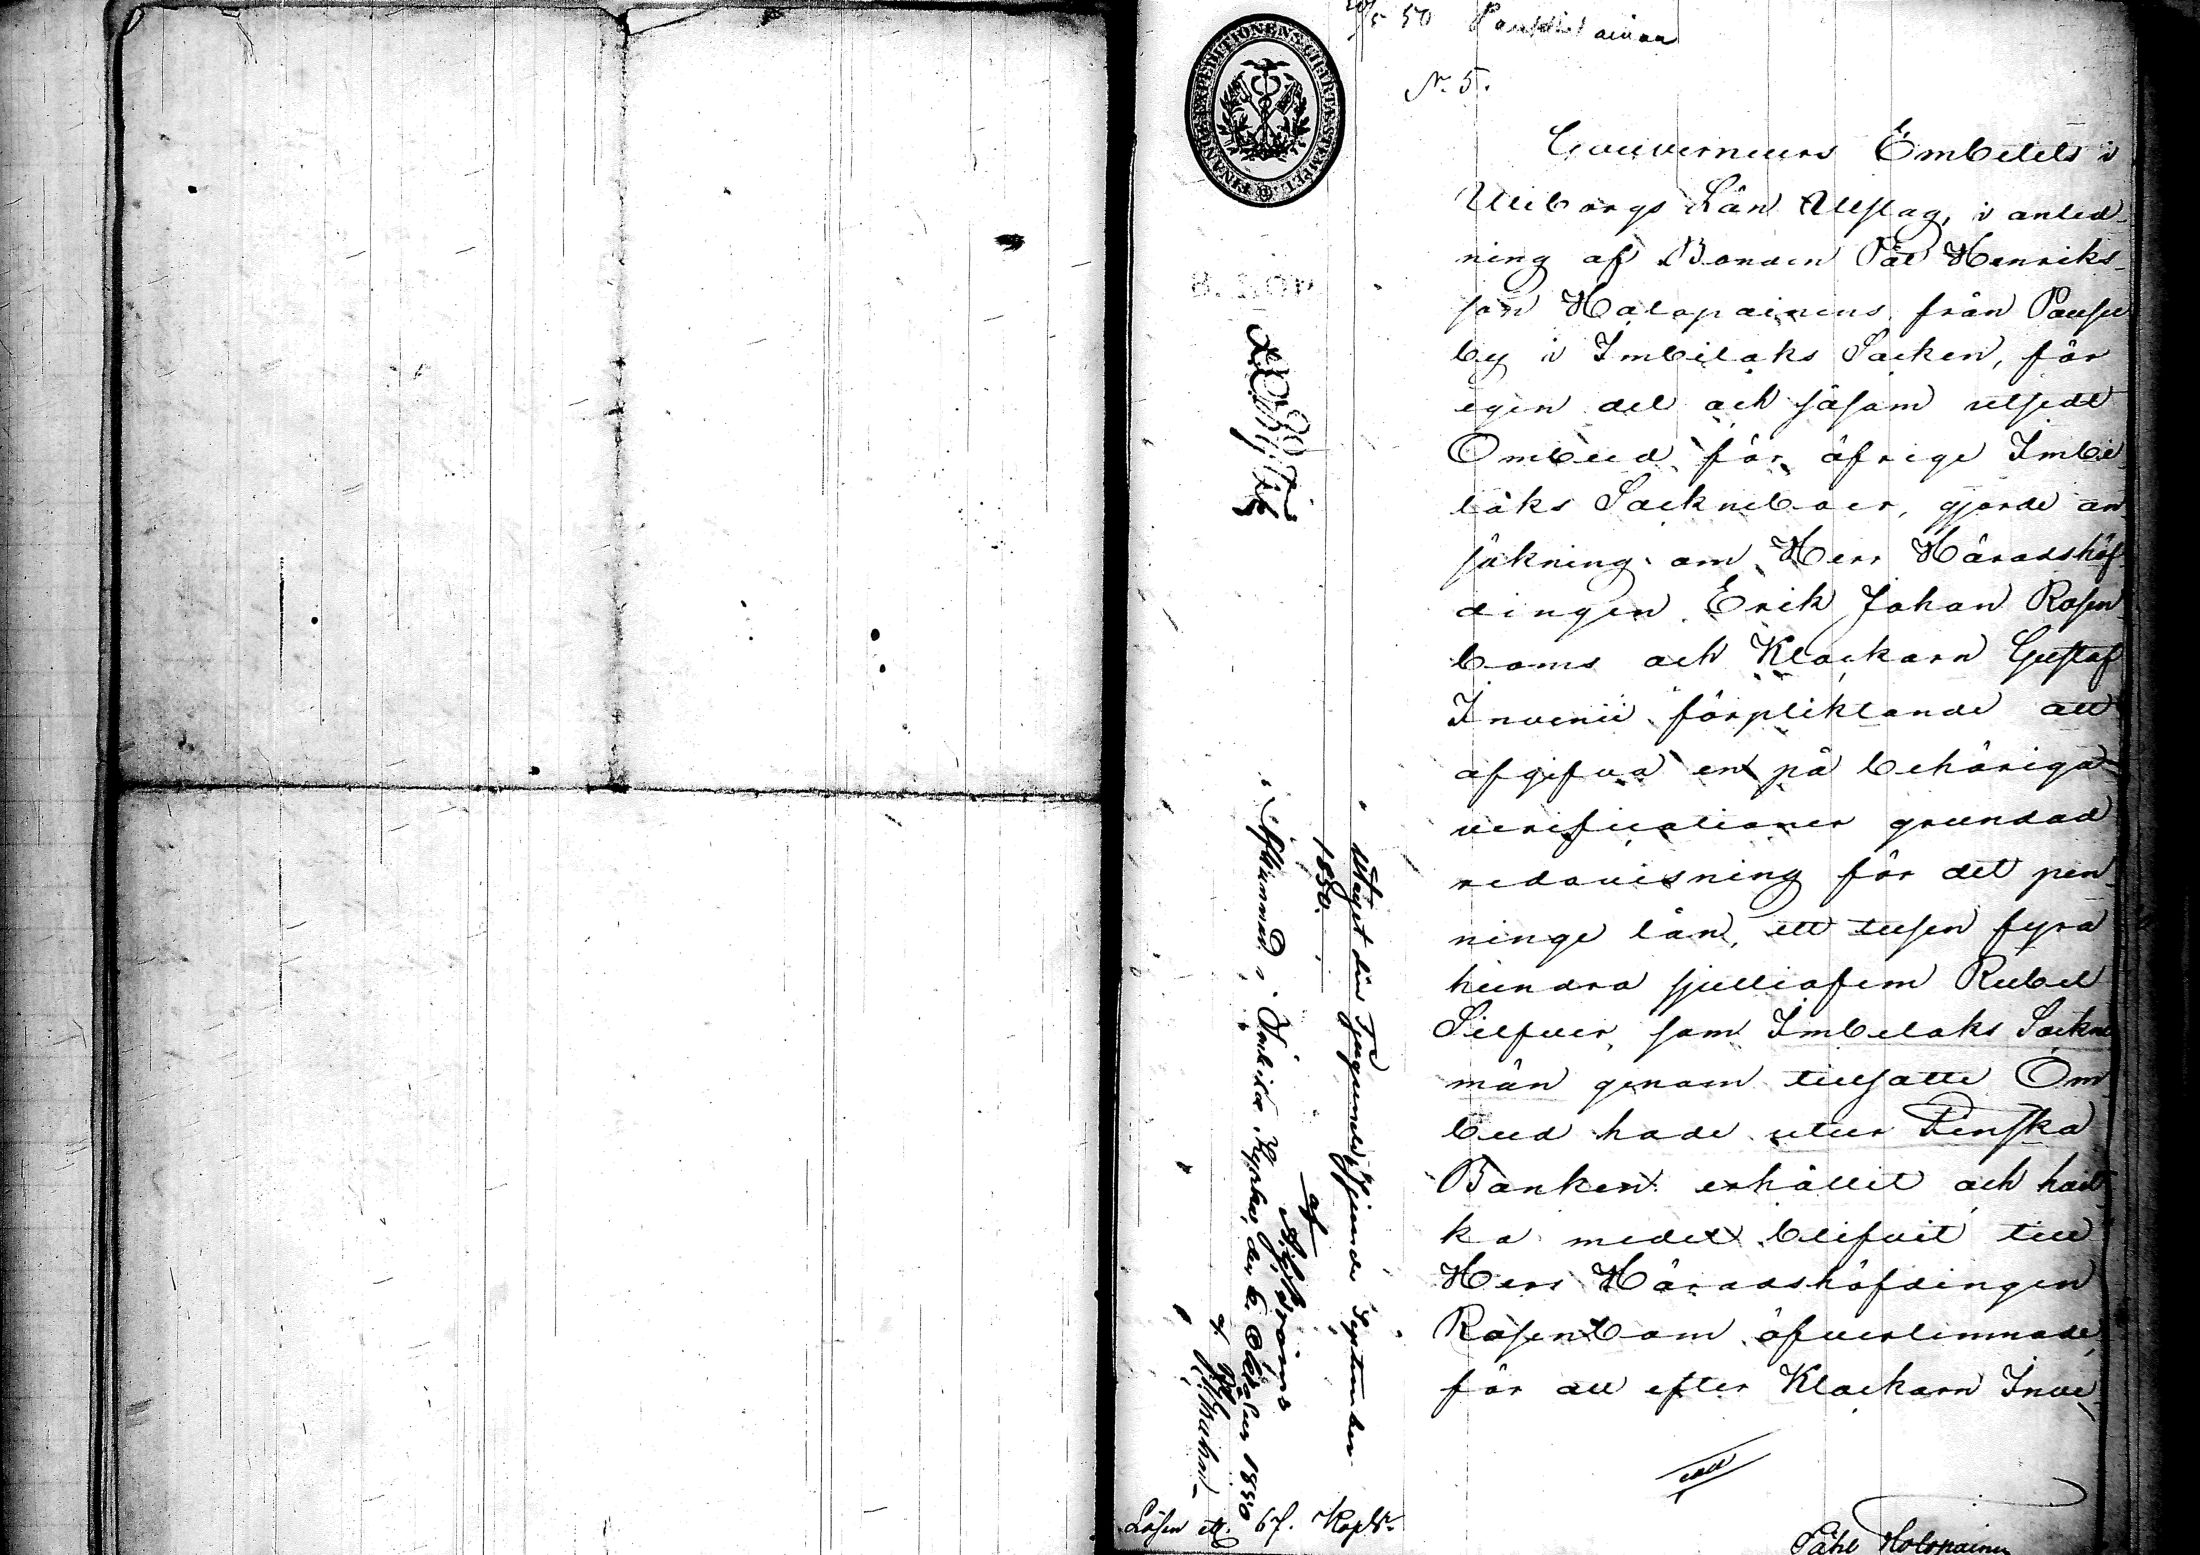 50
N. 5.
FINANCE EXPEDITIONENS CHARTÆ STEMPEL
Gouverneurs Embetets i
Wiborgs Län Utslag, i anled-
ning af Bonden Pål Henriks-
son Holopainens från Pausu
by i Imbilaks Socken, för
egen del och såsom utsedt
Ombud för öfrige Imbi
laks Sockneboer, gjorde an
sökning om Herr Häradshöf
dingen Erik Johan Rosen
boms och Klockarn Gustaf
Invenii förpliktande att
afgifva en på behöriga
verificationer grundad
redovisning för det pen
ninge lån, ett tusen fyra
hundra sjuttiofem Rubel
Silfver, som Imbelaks Sockne
män genom tillsatte Om
bud hade utur Finska
Banken erhållit och hvil
ka medel blifvit till
Herr Häradshöfdingen
Rosenbom öfverlemnade,
för att efter Klockarn Inve-
Påhl Holopainen
Uttaget den Tjugonde Sjunde September
1850.
af
i Imbilax Kyrka, den 6 October 1850
Lösen 67. Kop Sr